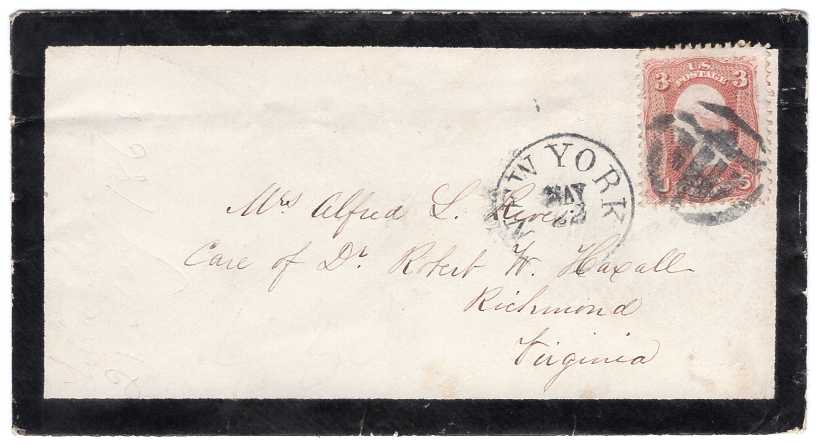 3 U.S. 3
POSTAGE
U S
NEW YORK
MAY
22
Mrs Alfred L. Rives
Care of Dr. Robert W. Haxall
Richmond
Virginia